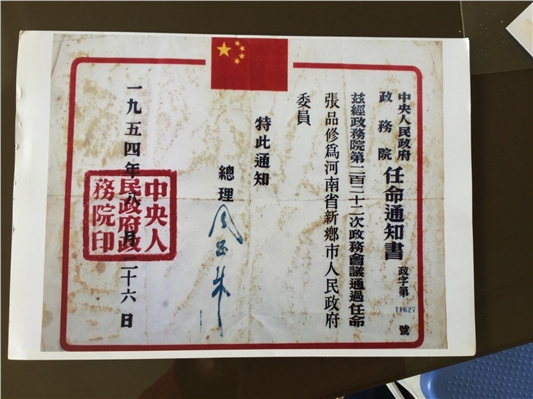 中央人民政府
政務院
任命通知書
政字第11627號
茲經政務院第二百二十二次政務會議通過任命
張品修爲河南省新鄉市人民政府
委員
特此通知
總理
一九五四年八月二十六日
中央人
民政府政
務院印